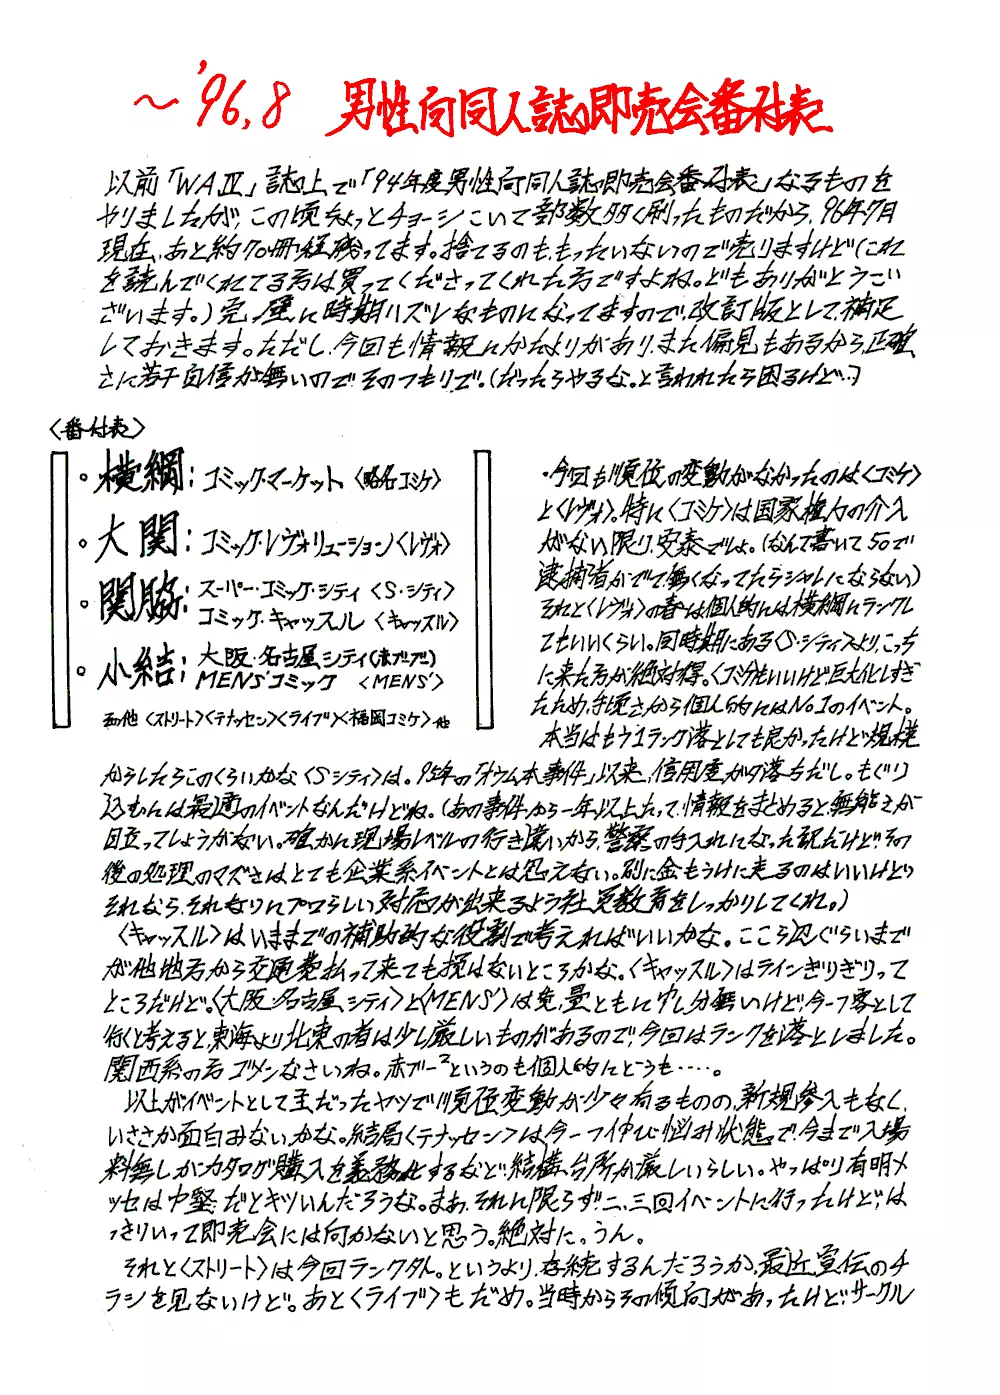 ～'96,8 男性向同人誌即売会番付表
以前「WAⅣ」誌上で「94年度男性向同人誌即売会番付表」なるものを
やりましたが、この頃ちょっとチョーシこいて部数多く刷ったものだから、96年7月
現在、あと約70冊程残ってます。捨てるのももったいないので売りますけど（これ
を読んでくれてる方は買ってくださってくれた方ですよね。どもありがとうござ
ざいます。）完ペキに時期ハズレなものになってますので、改訂版として、補足
しておきます。ただし、今回も情報にかたよりがあり、また偏見もあるから、正確
さに若干自信が無いので、そのつもりで。（だったらやるな。と言われたら困るけど…）
〈番付表〉
・横綱：コミック・マーケット〈略名コミケ〉
・大関：コミック・レヴォリューション〈レヴォ〉
・関脇：スーパー・コミック・シティ〈S・シティ〉
コミック・キャッスル〈キャッスル〉
・小結：大阪・名古屋シティ（赤ブブ）
MENS'コミック〈MENS'〉
その他〈ストリート〉〈テナッセン〉〈ライブ〉〈福岡コミケ〉他
・今回も順位の変動がなかったのは〈コミケ〉
と〈レヴォ〉。特に〈コミケ〉は国家権力の介入
がない限り、安泰でしょ。（なんて書いて50で
逮捕者がでて無くなってたらシャレにならない）
それと〈レヴォ〉の春は個人的には横綱にランクし
てもいいくらい。同時期にある〈S・シティ〉より、こっち
に来た方が絶対得。〈コミケ〉もいいけど巨大化しすぎ
たため、手頃さから個人的にはNo.1のイベント。
本当はもう1ランク落としても良かったけど規模
からしたらこのくらいかな〈Sシティ〉は。95年の「オウム本事件」以来、信用度がガタ落ちだし。もぐり
込むんは最適のイベントなんだけどね。（あの事件から一年以上たって、情報をまとめると、無能さが
目立ってしょうがない。確かに現場レベルの行き違いから、警察の手入れになった訳だけど、その
後の処理のマズさはとても企業系イベントとは思えない。別に金もうけに走るのはいいけどサ
それなら、それなりにプロらしい対応が出来るよう社員教育をしっかりしてくれ。）
〈キャッスル〉はいままでの補助的な役割で考えればいいかな。ここら辺ぐらいまで
が他地方から交通費払って来ても損はないところかな。〈キャッスル〉はラインぎりぎりって
ところだけど。〈大阪・名古屋シティ〉と〈MENS'〉は質、量ともに申し分無いけど、今一つ客として
行くと考えると、東海より北東の者は少し厳しいものがあるので、今回はランクを落としました。
関西系の方ゴメンなさいね。赤ブー²というのも個人的にどうも‥‥。
以上がイベントとして主だったヤツで順位変動が少々有るものの、新規参入もなく、
いささか面白みないかな。結局〈テナッセン〉は、今一つ伸び悩み状態で、今まで入場
料無しがカタログ購入を義務化するなど、結構、台所が厳しいらしい。やっぱり有明メ
ッセは中堅だとキツいんだろうな。まぁ、それに限らず、二、三回イベントに行ったけど、は
っきりいって即売会には向かないと思う。絶対に。うん。
それと〈ストリート〉は今回ランク外。というより、存続するんだろうか、最近、宣伝のチ
ラシを見ないけど。あと〈ライブ〉もだめ。当時からその傾向があったけど、サークル